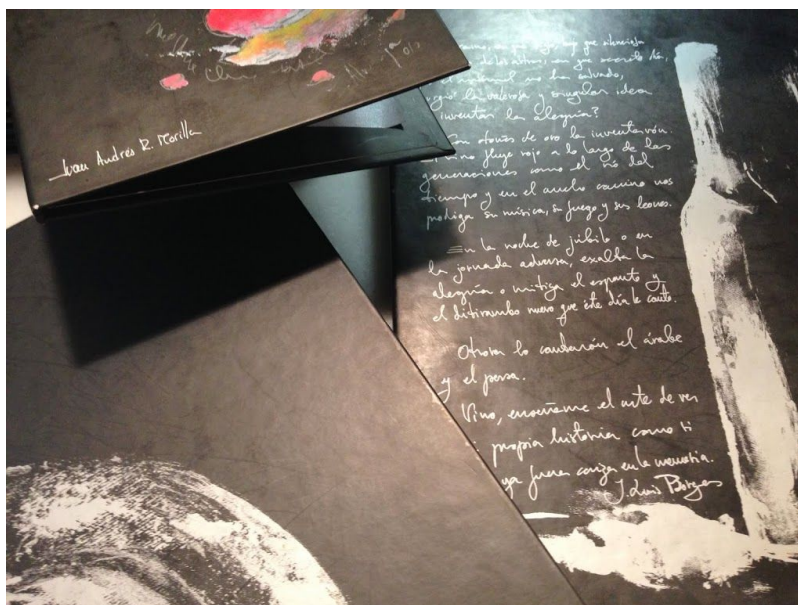 Juan Andrés R. Morilla
que silenciosa
de los astros, en que secreto día,
el mármol no ha salvado,
la valerosa y singular idea
inventar la alegría?
Con otoños de oro la inventaron.
vino fluye rojo a lo largo de las
generaciones como el río del
tiempo y en el arduo camino nos
prodiga su música, su fuego y sus leones.
En la noche de júbilo o en
la jornada adversa, exalta la
alegría o mitiga el espanto y
el ditirambo nuevo que éste día le canto.
Otrora lo cantarón el árabe
y el persa.
Vino, enseñame el arte de ver
propia historia como si
ya fuera ceniza en la memoria.
J. Luis Borges